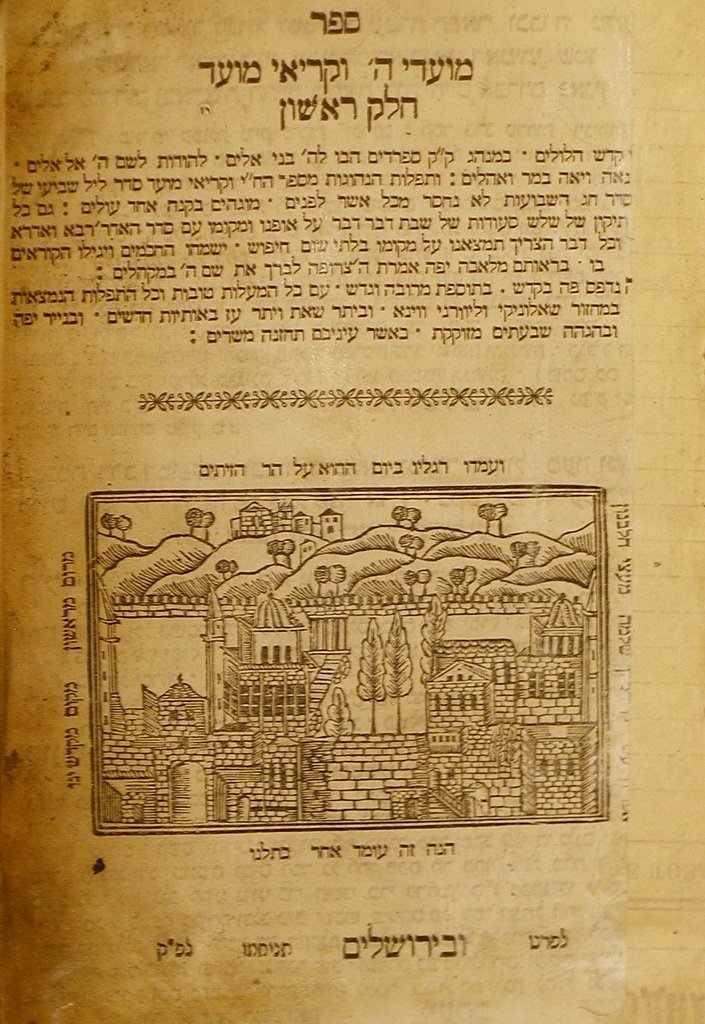 ספר
מועדי ה' וקריאי מועד
חלק ראשון
קדש הלולים · כמנהג ק"ק ספרדים הבו לה' בני אלים · להודות לשם ה' אל אלים ·
נאה ויאה במר ואהלים : ותפלות הנהוגות מספר הח"י וקריאי מועד סדר ליל שביעי של
סדר חג השבועות לא נחסר מכל אשר לפנים · מוגהים בקנה אחד עולים : גם כל
תיקון של שלש סעודות של שבת דבר דבר על אופנו ומקומו עם סדר האדר רבא ואדרא
וכל דבר הצריך תמצאנו על מקומו בלתי שום חיפוש · ישמחו החכמים ויגילו הקוראים
בו · בראותם מלאכה יפה אמרת ה' צרופה לברך את שם ה' במקהלים :
נדפס פה בקדש . בתוספת מרובה וגדש · עם כל המעלות טובות וכל התפלות הנמצאות
במחזור שאלוניקי וליוורני ווינא · וביתר שאת ויתר עז באותיות חדשים · ובנייר יפה
ובהגהה שבעתים מזוקקת · כאשר עיניכם תחזנה משרים :
ועמדו רגליו ביום ההוא על הר הזיתים
מרום מראשון מקום מקדשינו
מעצי הלבנון
הנה זה עומד אחר כתלנו
לפרט ובירושלים תניחמו לפ"ק